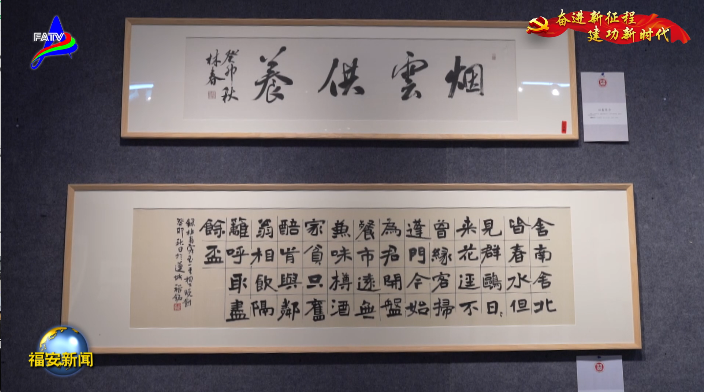 FATV
奋进新征程
建功新时代
烟雲供養
癸卯秋
林春
舍南舍北
皆春水但
見群鷗日〻
来花逕不
曾緣客掃
蓬門今始
為君開盤
餐市遠無
兼味樽酒
家貧只舊
醅肯與鄰
翁相飲隔
籬呼取盡
餘盃
癸卯秋日於蓮城
福安新闻